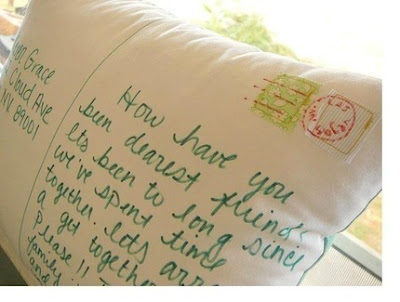 Grace
Cloud Ave
NV 89001
How have you
been dearest friend
Its been to long since
we've spent time
together. lets arra
a get togethe
please!!
family
and
LAS
VEGAS